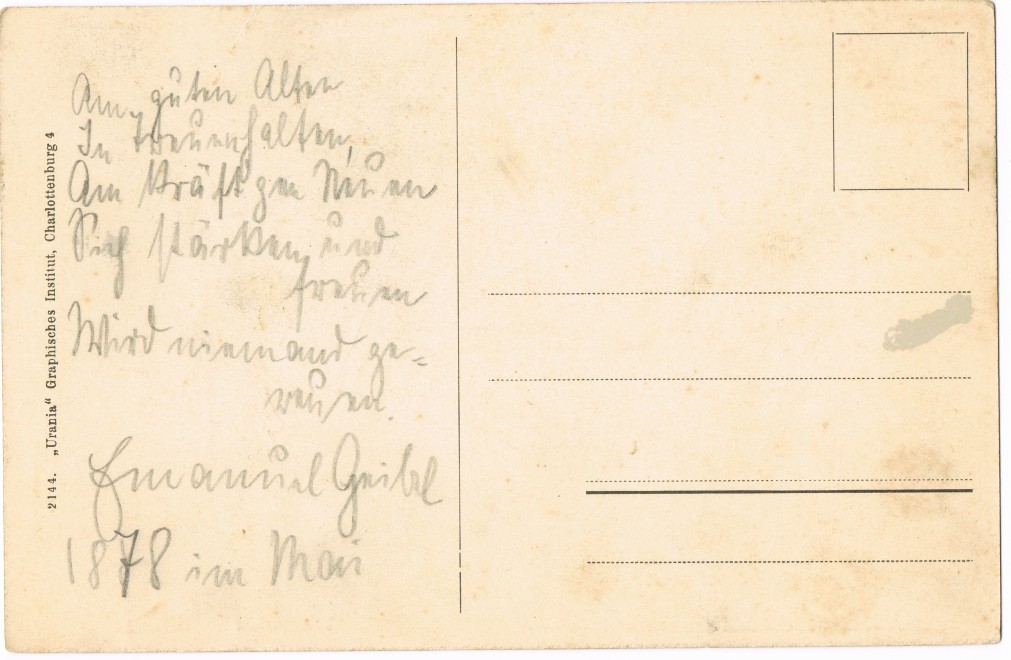 2144. „Urania“ Graphisches Institut, Charlottenburg 4
Am guten Alten
In Treuen halten,
Am kräft'gen Neuen
Sich stärken und
freuen
Wird niemand ge-
reuen.
Emanuel Geibel
1878 im Mai